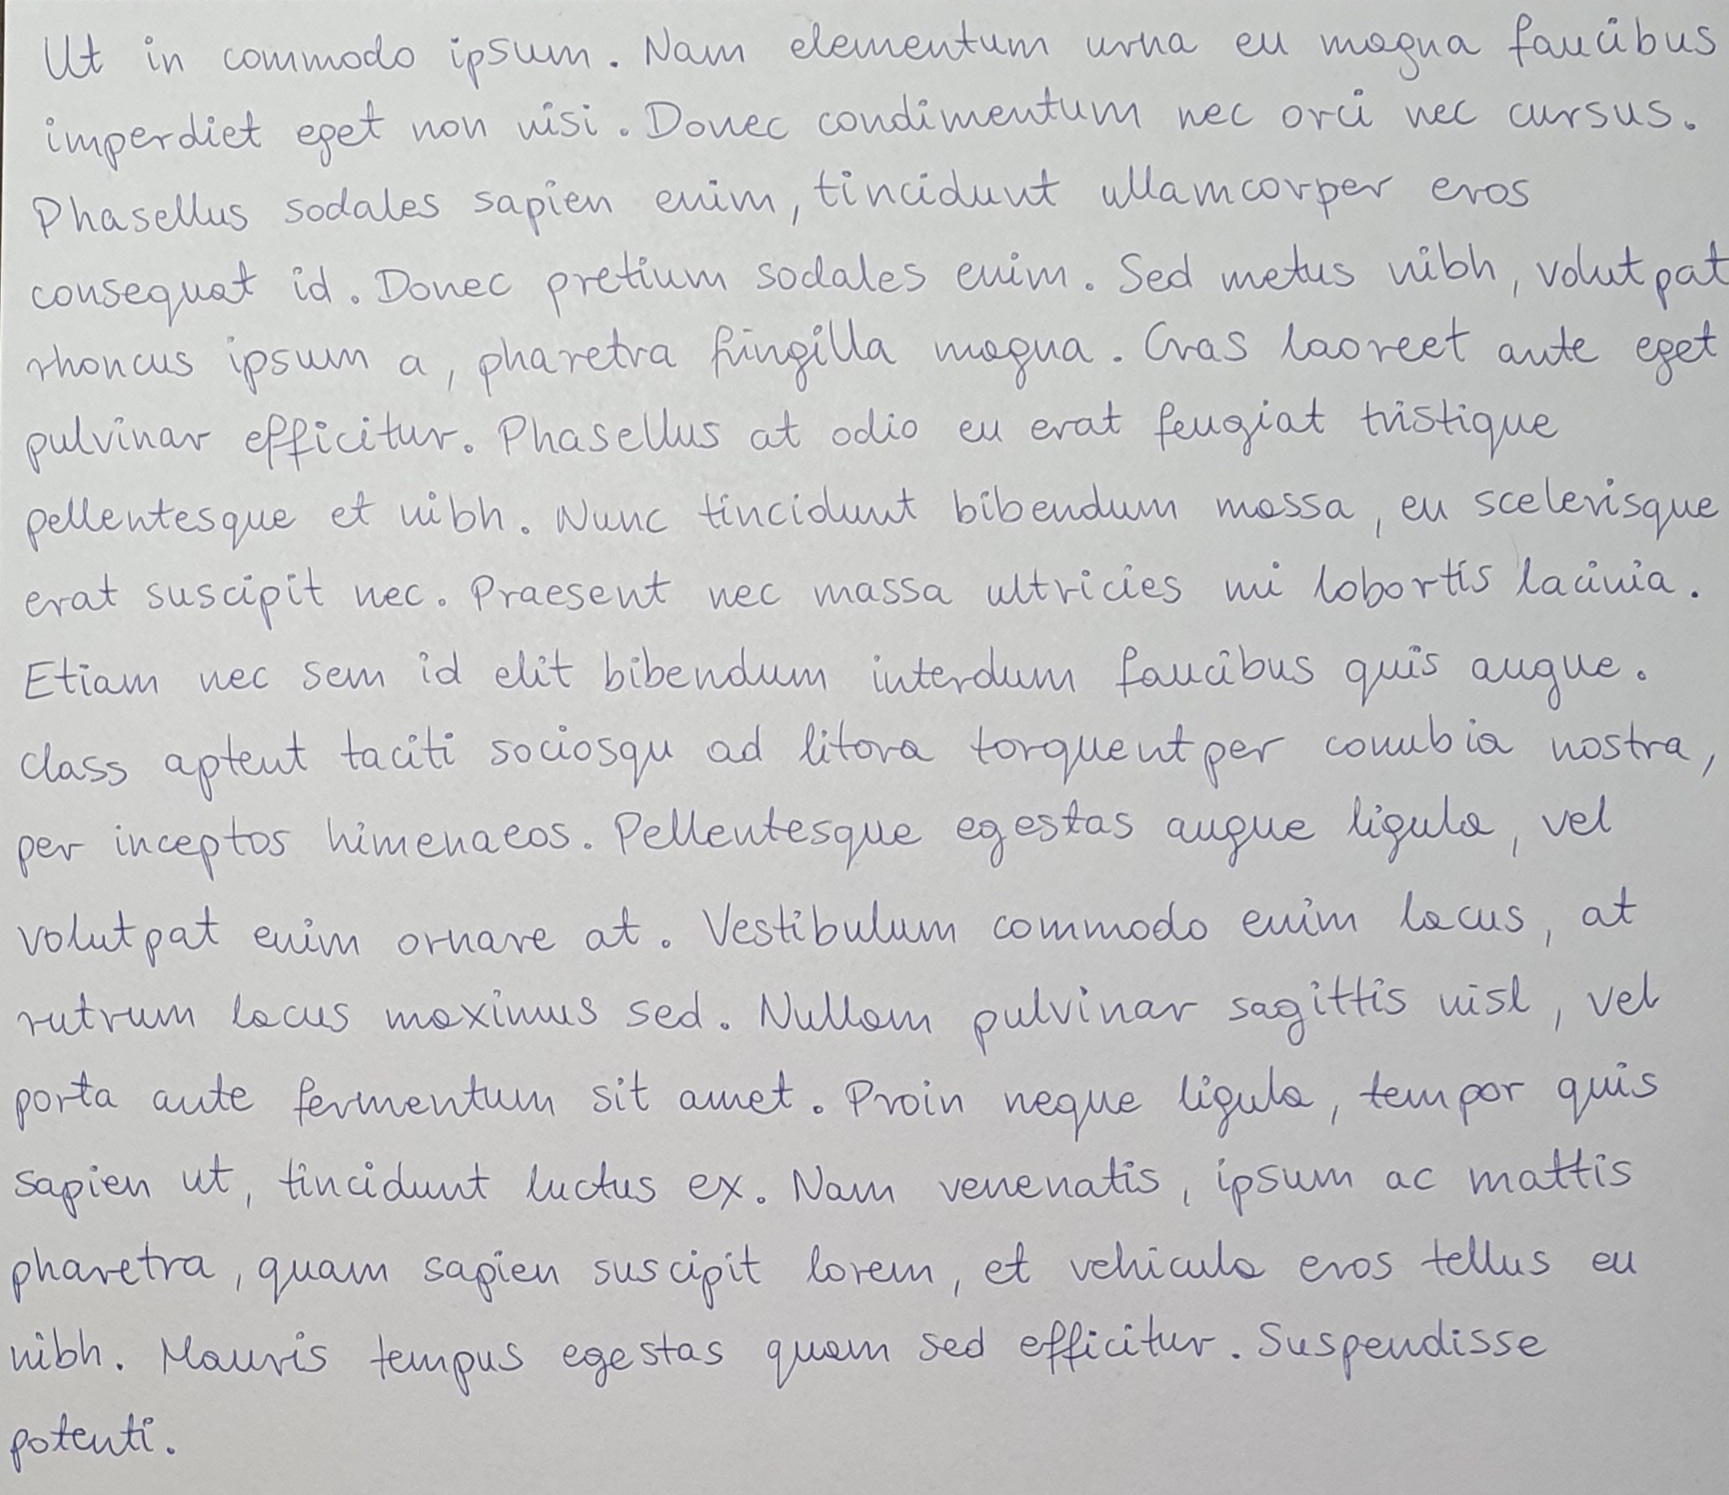 Ut in commodo ipsum. Nam elementum urna eu magna faucibus
imperdiet eget non nisi. Donec condimentum nec orci nec cursus.
Phasellus sodales sapien enim, tincidunt ullamcorper eros
consequat id. Donec pretium sodales enim. Sed metus nibh, volutpat
rhoncus ipsum a, pharetra fringilla magna. Cras laoreet ante eget
pulvinar efficitur. Phasellus at odio eu erat feugiat tristique
pellentesque et nibh. Nunc tincidunt bibendum massa, eu scelerisque
erat suscipit nec. Praesent nec massa ultricies mi lobortis lacinia.
Etiam nec sem id elit bibendum interdum faucibus quis augue.
Class aptent taciti sociosqu ad litora torquent per conubia nostra,
per inceptos himenaeos. Pellentesque egestas augue ligula, vel
volutpat enim ornare at. Vestibulum commodo enim lacus, at
rutrum lacus maximus sed. Nullam pulvinar sagittis nisl, vel
porta ante fermentum sit amet. Proin neque ligula, tempor quis
sapien ut, tincidunt luctus ex. Nam venenatis, ipsum ac mattis
pharetra, quam sapien suscipit lorem, et vehicula eros tellus eu
nibh. Mauris tempus egestas quam sed efficitur. Suspendisse
potenti.